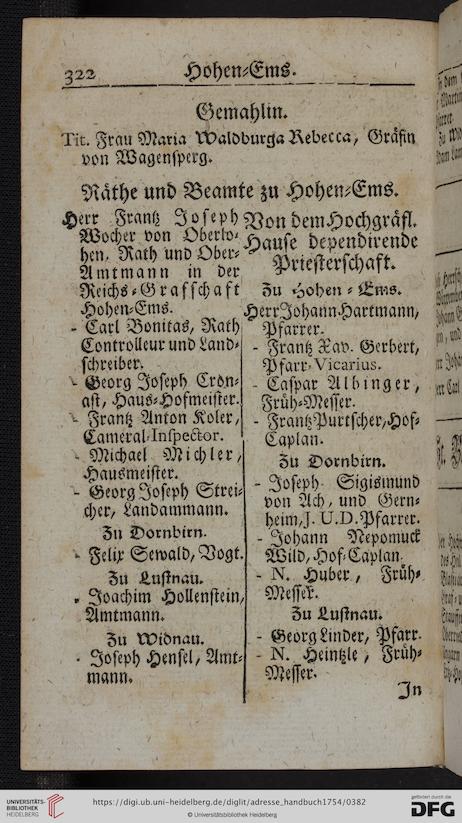 322 Hohen-Ems.
Gemahlin.
Tit. Frau Maria Waldburga Rebecca, Gräfin
von Wagensperg.
Räthe und Beamte zu Hohen-Ems.
Herr Frantz Joseph
Wocher von Oberlo-
hen, Rath und Ober-
Amtmann in der
Reichs-Grafschaft
Hohen-Ems.
- Carl Bonitas, Rath
Controlleur und Land-
schreiber.
- Georg Joseph Crön-
ast, Haus-Hofmeister.
- Frantz Anton Koler,
Cameral-Inspector.
- Michael Michler,
Hausmeister.
- Georg Joseph Strei-
cher, Landammann.
Zu Dornbirn.
- Felix Sewald, Vogt.
Zu Lustnau.
- Joachim Hollenstein,
Amtmann.
Zu Widnau.
- Joseph Hensel, Amt-
mann.
Von dem Hochgräfl.
Hause dependirende
Priesterschaft.
Zu Hohen-Ems.
Herr Johann Hartmann,
Pfarrer.
- Frantz Xav. Gerbert,
Pfarr-Vicarius.
- Caspar Albinger,
Früh-Messer.
- Frantz Purtscher, Hof-
Caplan.
Zu Dornbirn.
- Joseph Sigismund
von Ach, und Gern-
heim, J. U. D. Pfarrer.
- Johann Nepomuck
Wild, Hof-Caplan.
- N. Huber, Früh-
Messer.
Zu Lustnau.
- Georg Linder, Pfarr.
- N. Heintzle, Früh-
Messer.
In
UNIVERSITÄTS-
BIBLIOTHEK
HEIDELBERG
https://digi.ub.uni-heidelberg.de/diglit/adresse_handbuch1754/0382
© Universitätsbibliothek Heidelberg
gefördert durch die
DFG